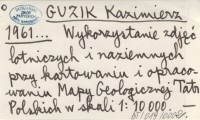 GUZIK Kazimierz
1961... Wykorzystanie zdjęć
lotniczych i naziemnych
przy kartowaniu i opraco-
waniu Mapy Geologicznej Tatr
Polskich w skali 1:10 000.-